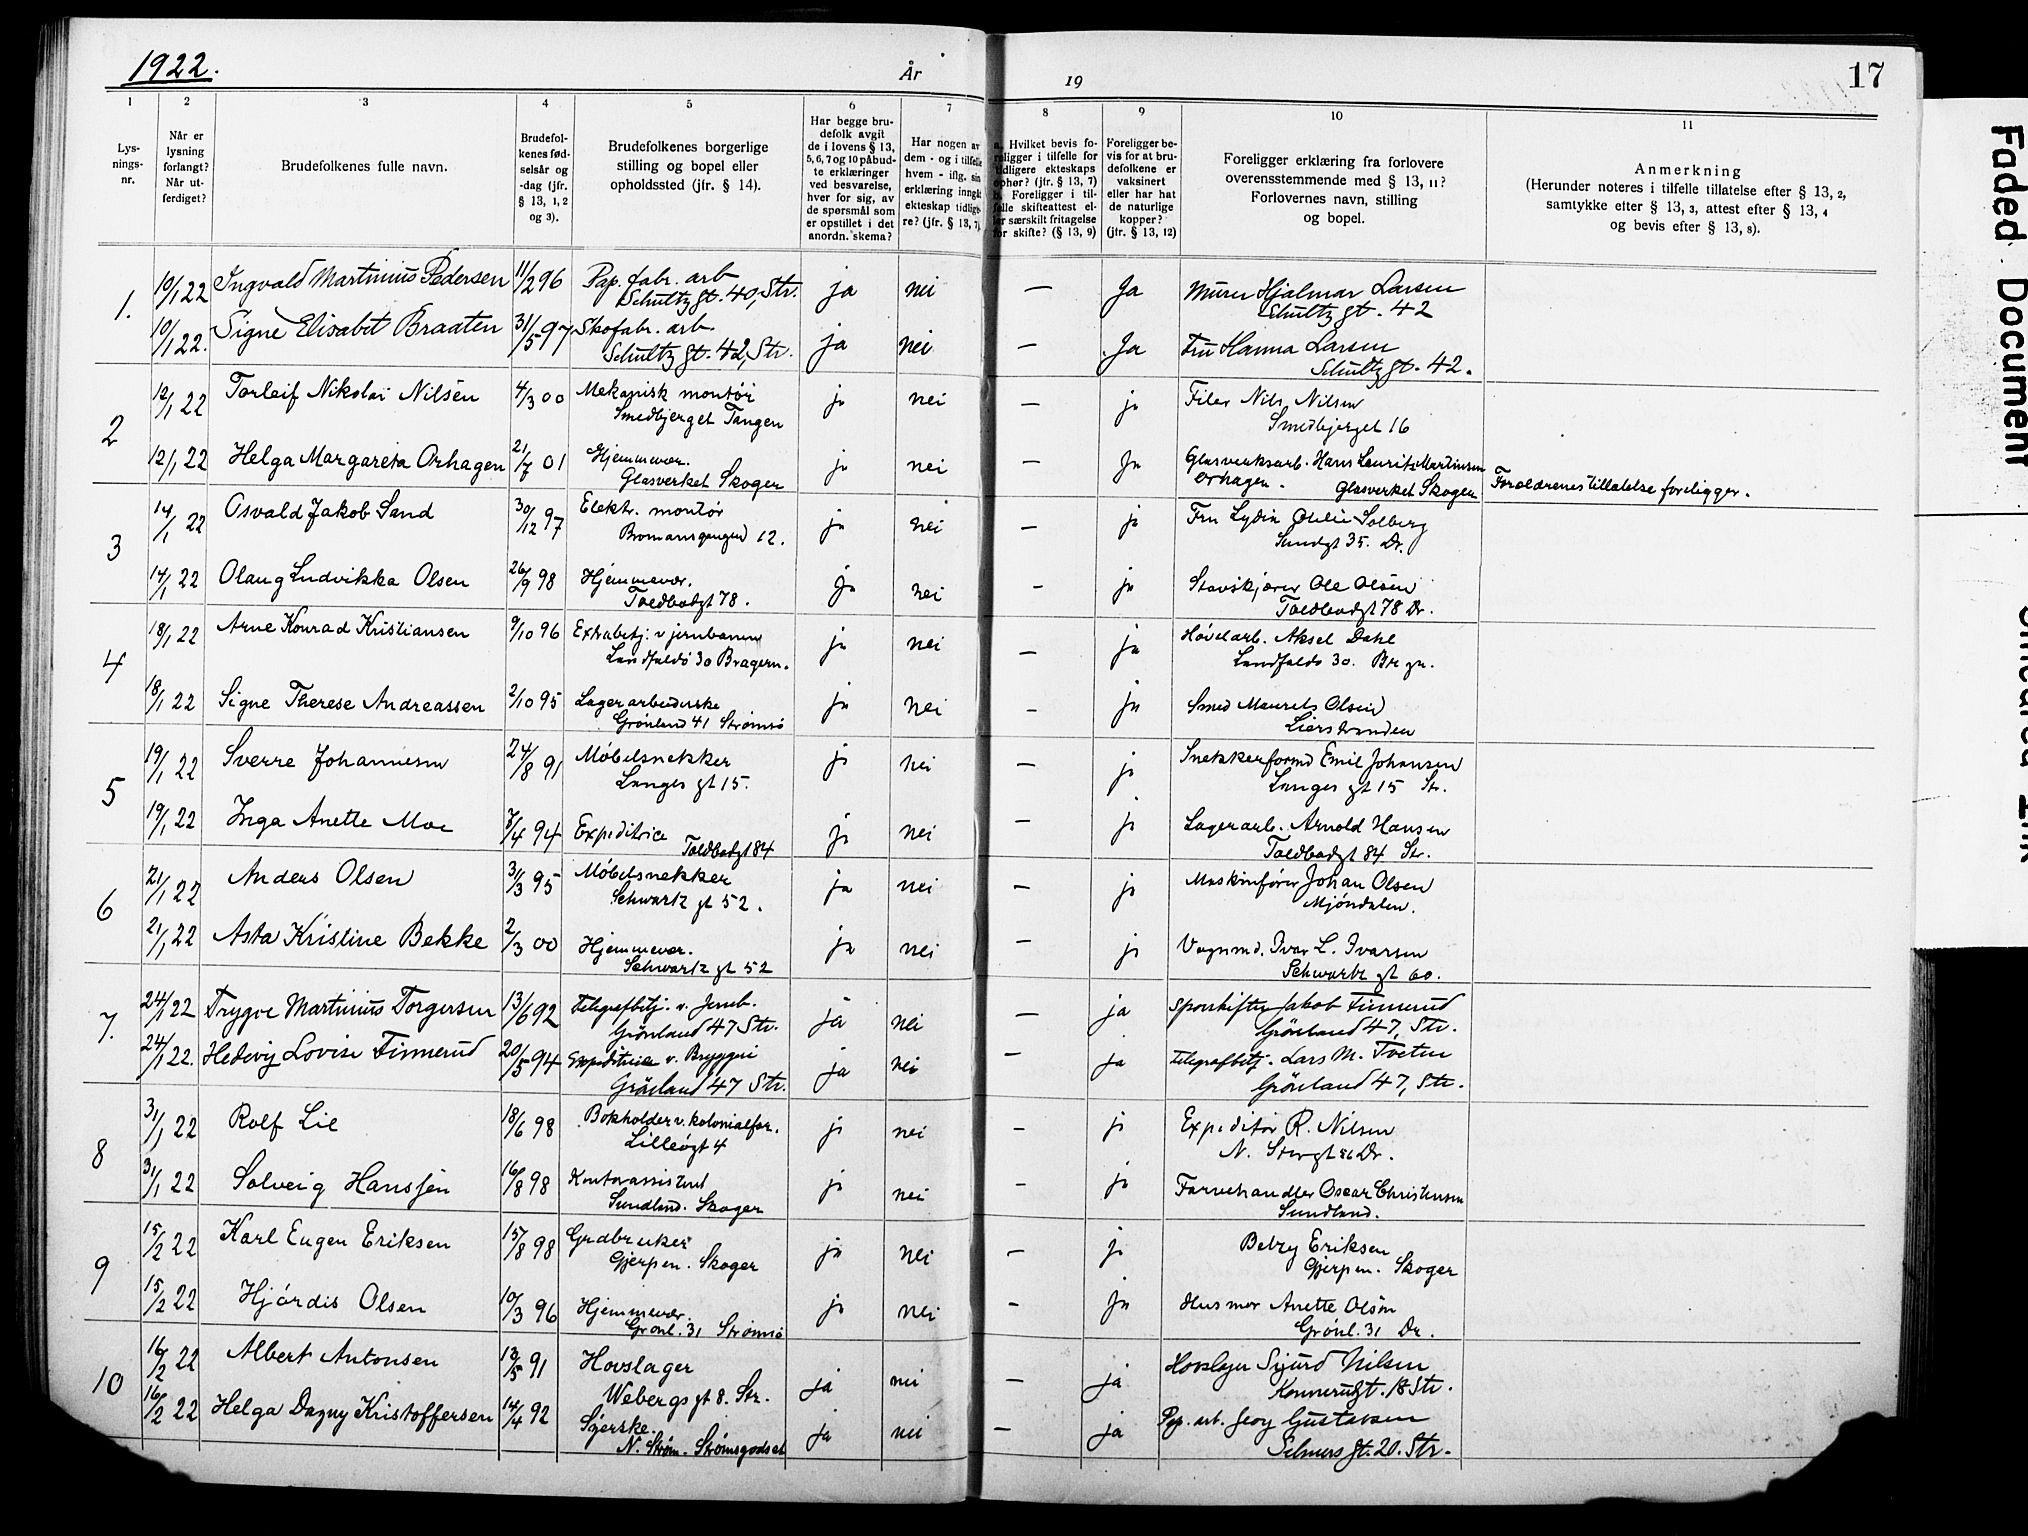 1922.
År
19
17
1
2
3
4
5
6
7
8
9
10
11
Lys-
nings-
nr.
Når er
lysning
forlangt?
Når ut-
ferdiget?
Brudefolkenes fulle navn.
Brudefol-
kenes fød-
selsår og
-dag (jfr.
§ 13, 1, 2
og 3).
Brudefolkenes borgerlige
stilling og bopel eller
opholdssted (jfr. § 14).
Har begge bru-
defolk avgit
de i lovens § 13,
5, 6, 7 og 10 påbud-
te erklæringer
ved besvarelse,
hver for sig, av
de spørsmål som
er opstillet i det
anordn. skema?
Har nogen av
dem - og i tilfelle
hvem - iflg. sin
erklæring inngåt
ekteskap tidlige-
re? (jfr. § 13, 7)
a. Hvilket bevis fo-
religger i tilfelle for
tidligere ekteskaps
ophør? (jfr. § 13, 7)
b. Foreligger i til-
felle skifteattest el-
ler særskilt fritagelse
for skifte? (§ 13, 9)
Foreligger be-
vis for at bru-
defolkene er
vaksinert
eller har hat
de naturlige
kopper?
(jfr. § 13, 12)
Foreligger erklæring fra forlovere
overensstemmende med § 13, 11?
Forlovernes navn, stilling
og bopel.
Anmerkning
(Herunder noteres i tilfelle tillatelse efter § 13, 2,
samtykke efter § 13, 3, attest efter § 13, 4
og bevis efter § 13, 8).
1. 10/1 22 Ingvald Martinius Pedersen 11/2 96 Pap. fabr. arb ja nei — Ja Murer Hjalmar Larsen
Schultz gt. 40, Str. Schultz gt. 42
10/1 22. Signe Elisabet Braaten 31/5 97 Skofabr. arb. ja nei — Ja Fru Hanna Larsen
Schultz gt. 42, Str. Schultz gt. 42.
2 12/1 22 Torleif Nikolai Nilsen 4/3 00 Mekanisk montør ja nei — ja Filer Nils Nilsen
Smedbjerget Tangen Smedbjerget 16
12/1 22 Helga Margareta Orhagen 21/7 01 Hjemmevær. ja nei — Ja Glasverksarb. Hans Laurits Martinsen
Glasverket Skoger Orhagen. Glasverket Skogen Foreldrenes tillatelse foreligger.
3 14/1 22 Osvald Jakob Sand 30/12 97 Elektr. montør ja nei — ja Fru Lydia Othilie Solberg
Bromansgangen 12. Sundgt 35. Dr.
14/1 22 Olaug Ludvikka Olsen 26/9 98 Hjemmevær. ja nei — ja Stavskjærer Ole Olsen
Toldbodgt 78. Toldbodgt 78 Dr.
4 18/1 22 Arne Konrad Kristiansen 9/10 96 Extrabetj. v jernbanen ja nei — ja Høvelarb. Aksel Dahl
Landfaldø 30 Bragern. Landfaldø 30. Brgn.
18/1 22 Signe Therese Andreassen 2/10 95 Lagerarbeiderske ja nei — ja Smed Maurits Olsen
Grønland 41 Strømsø Lierstranden
5 19/1 22 Sverre Johannesen 24/8 91 Møbelsnekker ja nei — ja Snekkerformd Emil Johansen
Langes gt 15. Langes gt 15 Str.
19/1 22 Inga Anette Moe /4 94 Expeditrice ja nei — ja Lagerarb. Arnold Hansen
Toldbodgt 84 Toldbodgt 84 Str.
6 21/1 22 Anders Olsen 31/3 95 Møbelsnekker ja nei — ja Maskinfører Johan Olsen
Schwartz gt 52. Mjøndalen.
21/1 22 Asta Kristine Bekke 2/3 00 Hjemmevær. ja nei — ja Vognmd. Ivar L. Ivarsen
Schwartz gt 52 Schwartz gt 60.
7. 24/1 22 Trygve Martinius Torgersen 13/6 92 Telegrafbetj. v. Jernb. ja nei — ja Sporskifter Jakob Finnerud
Grönland 47 Str. Grönland 47, Str.
24/1 22. Hedevig Lovise Finnerud 20/5 94 Expeditrice v. Bryggeri ja nei — ja Telegrafbetj. Lars M. Tveten
Grönland 47 Str. Grönland 47, Str.
8 31/1 22 Rolf Lie 18/6 98 Bokholder v. kolonialfor. ja nei — ja Expeditør R. Nilsen
Lilleøgt 4 N. Storgt 56 Dr.
31/1 22 Solveig Hanssen 16/8 98 Kontorassistent ja nei — ja Farvehandler Oscar Christensen
Sundland. Skoger Sundland.
9 15/2 22 Karl Eugen Eriksen 15/8 98 Grdbruker ja nei — ja Betzy Eriksen
Gjerpen. Skoger Gjerpen. Skoger
15/2 22 Hjørdis Olsen 10/3 96 Hjemmevær. ja nei — ja Husmor Anette Olsen
Grönl. 31 Strømsø Grönl. 31 Dr.
10 16/2 22 Albert Antonsen 13/5 91 Hovslager ja nei — ja Hovslager Sigurd Nilsen
Webergs gt 8. Str. Konnerudgt. 18 Str.
16/2 22 Helga Dagny Kristoffersen 14/4 92 Syerske. ja nei — ja Pap. arb. Georg Gustavsen
N. Strøm. Strømsgodset Selmers gt. 20. Str.
Faded Document